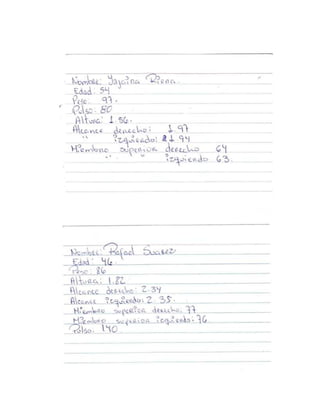 Nombre: Yajaira Riera.
Edad: 54
Peso: 97.
Pulso: 80
Altura: 1.56.
Alcance derecho: 1.97
" Izquierdo: 1.94
Miembro superior derecho 64
" " Izquierdo 63.
Nombre: Rafael Suarez
Edad: 46.
Peso: 86
Altura: 1.82
Alcance derecho: 2.34
Alcance Izquierdo: 2.35.
Miembro superior derecho: 77
Miembro superior izquierdo: 76
Pulso: 140